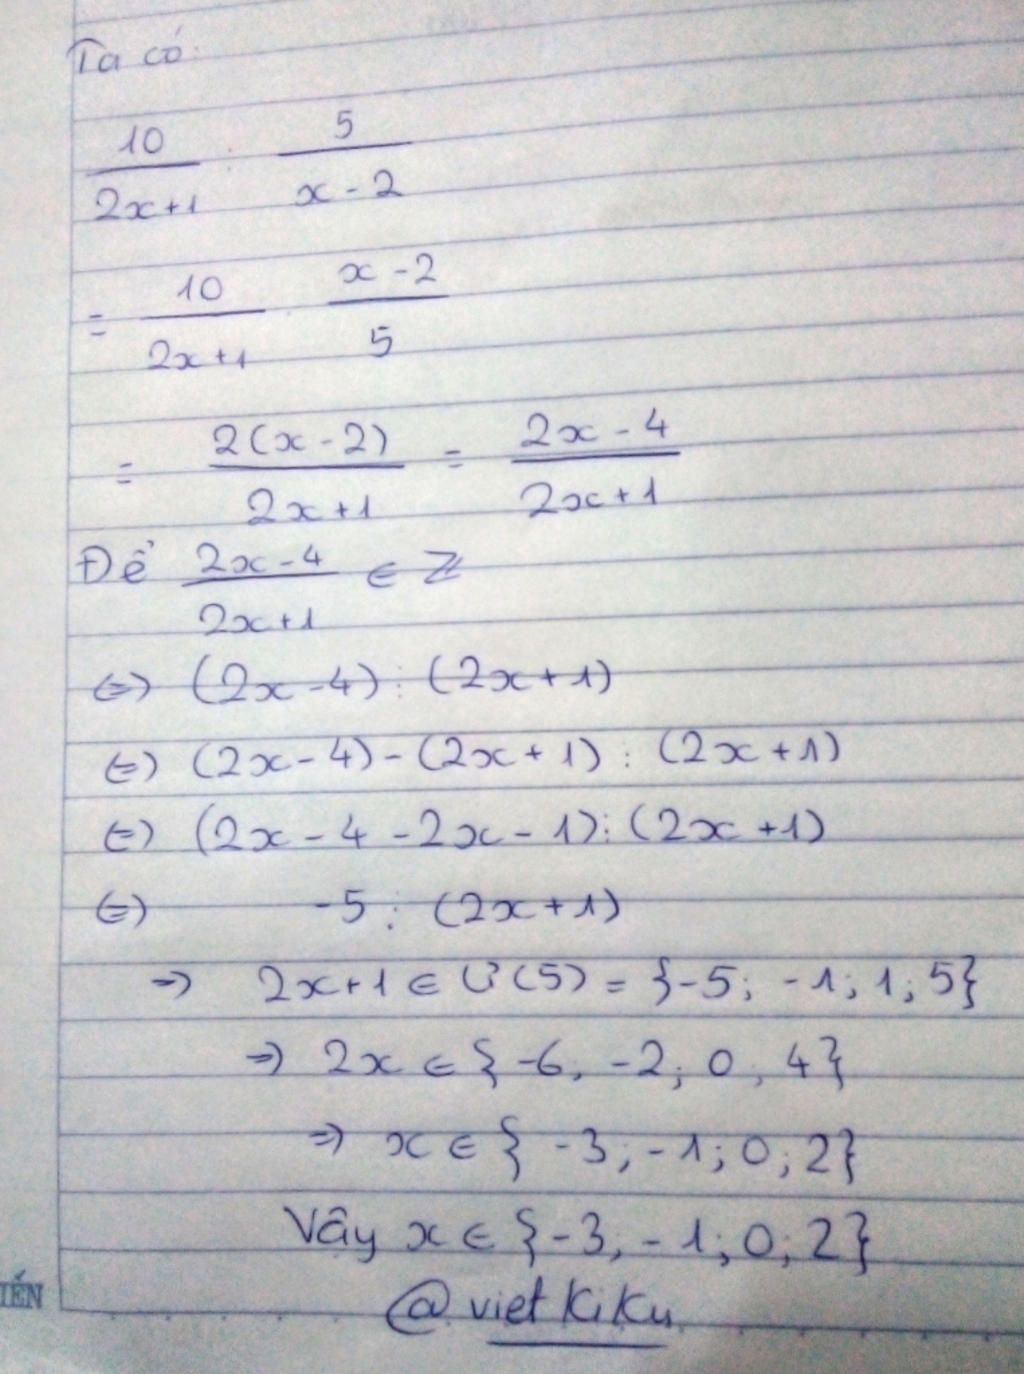 Ta có:
10/2x+1 : 5/x-2
= 10/2x+1 . x-2/5
= 2(x-2)/2x+1 = 2x-4/2x+1
Để 2x-4/2x+1 ∈ Z
⇔ (2x-4) ⋮ (2x+1)
⇔ (2x-4)-(2x+1) ⋮ (2x+1)
⇔ (2x-4-2x-1) ⋮ (2x+1)
⇔ -5 ⋮ (2x+1)
⇒ 2x+1 ∈ Ư(5) = {-5; -1; 1; 5}
⇒ 2x ∈ {-6, -2; 0, 4}
⇒ x ∈ {-3; -1; 0; 2}
Vậy x ∈ {-3, -1; 0; 2}
@vietKiKu
IẾN